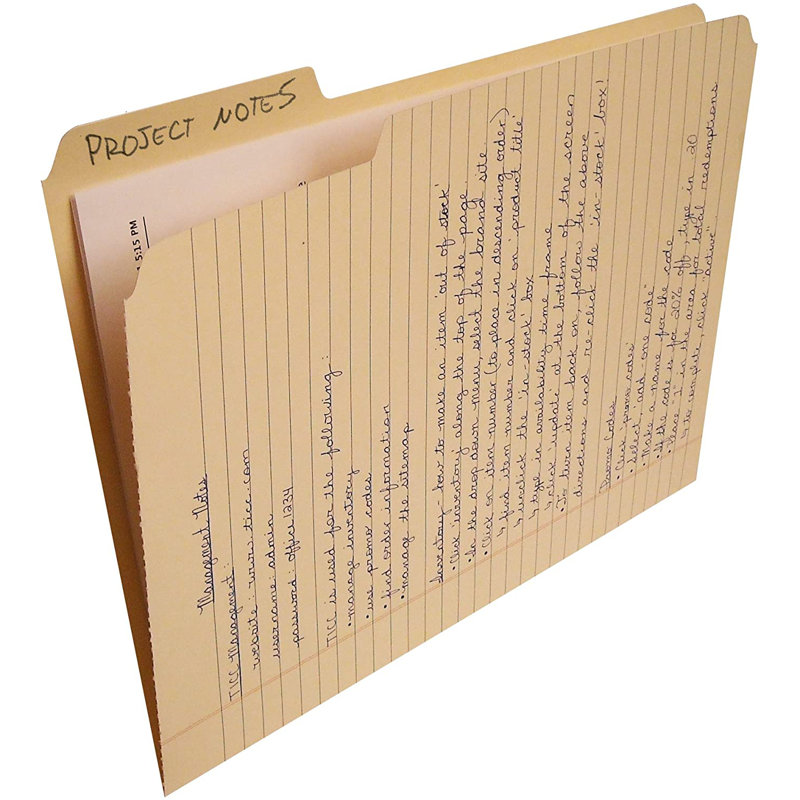 PROJECT NOTES
5:15 PM
Management Notes
TICC Management:
website: www.ticc.com
username: admin
password: office1234
TICC is used for the following:
• manage inventory
• use promo codes
• find order information
• manage the sitemap
Inventory - how to make an item 'out of stock'
• Click inventory along the top of the page
• In the drop down menu, select the brand site
• Click on item number (to place in descending order)
↳ find item number and click on 'product title'
↳ unclick the 'in-stock' box
↳ type in availability time frame
↳ click 'update' at the bottom of the screen
• To turn item back on, follow the above
directions and re-click the 'in-stock' box!
Promo Codes
• Click 'promo codes'
• Select, "add-one code"
• Make a name for the code
• If the code is for 20% off, type in 20
• Place "1" in the area for total redemptions
↳ to complete, click "active"